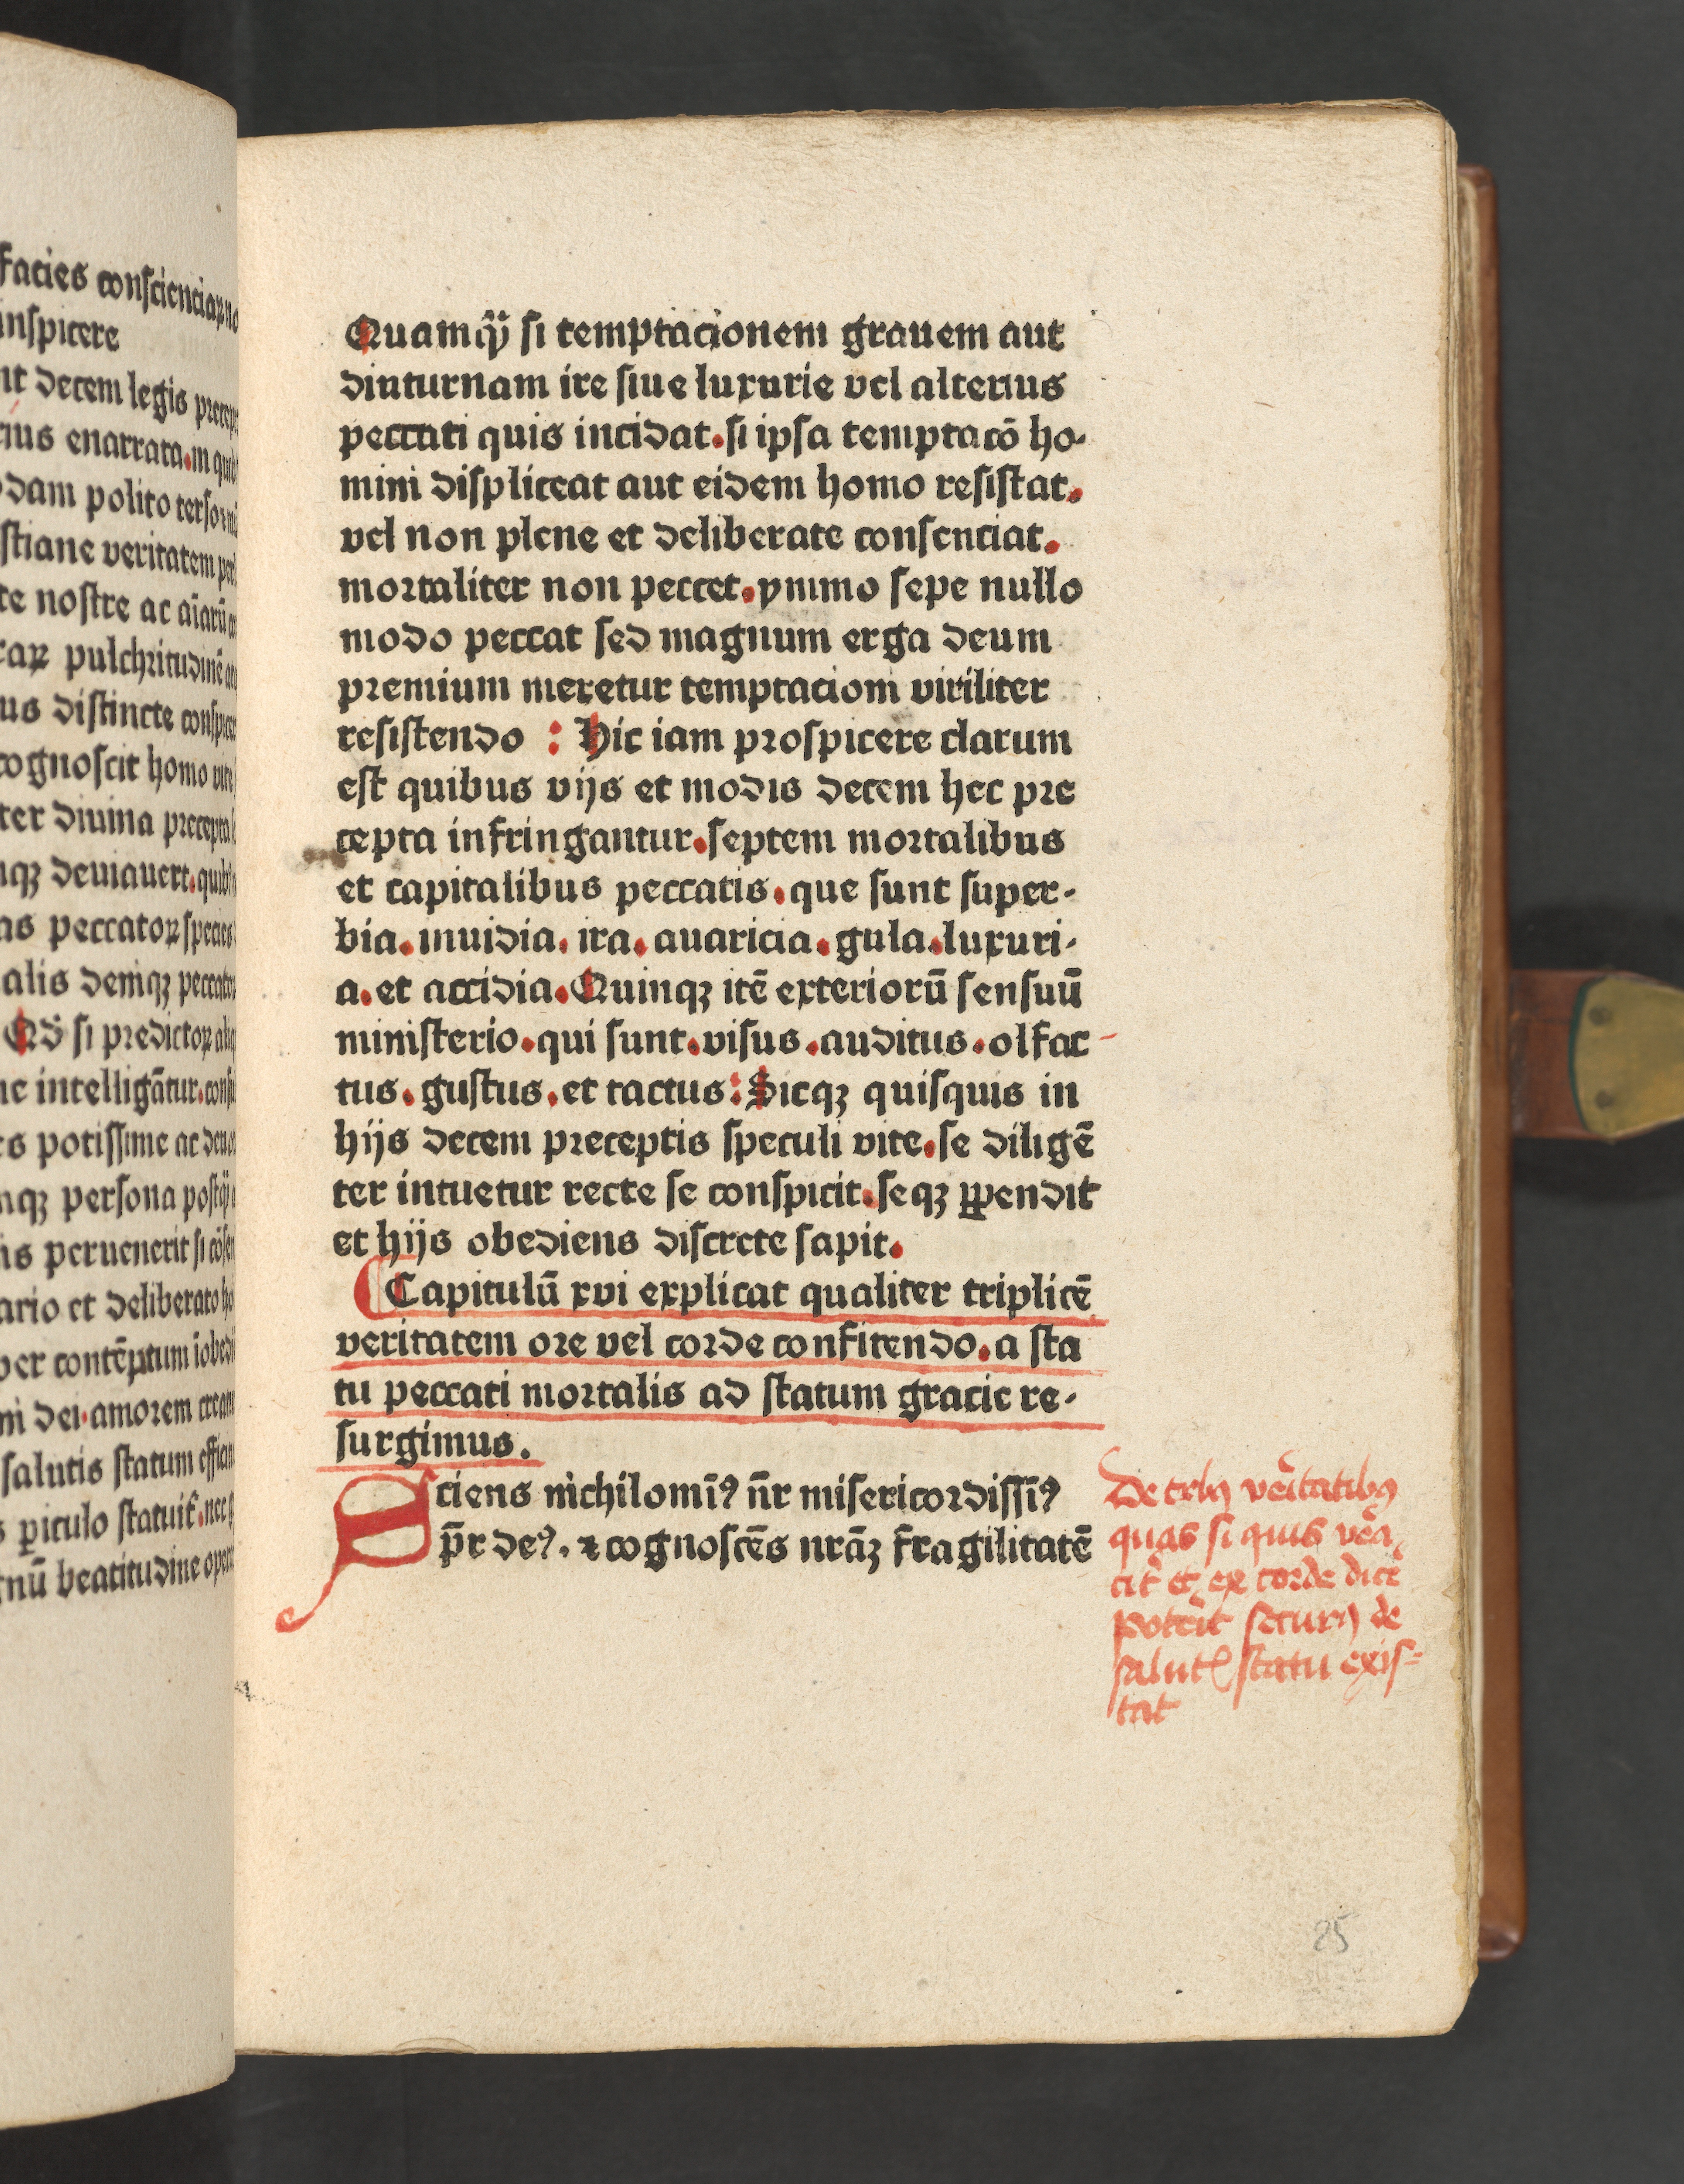 facies conscienciaꝝ no
inspicere
nt decem legis precep
rius enarrata.in quib
dam polito tersor
stiane veritatem per
te nostre ac aīarū
raꝝ pulchritudinē
us distincte conspicer
cognoscit homo vite
ter diuina precepta
nqꝫ deuiauert.quib
as peccatoꝝ species
alis deniqꝫ peccator
Qd̄ si predictoꝝ aliq
ne intelligātur.consu
es potissime ac deuo
mqꝫ persona postꝙ̄
is peruenerit si cōsen
ario et deliberato ho
per contēptum iobedi
ni dei.amorem creatu
salutis statum effician
s ꝑiculo statuit̄.nec
gnū beatitudine opera
Quamꝙ̄ si temptacionem grauem aut
diuturnam ire siue luxurie vel alterius
peccati quis incidat.si ipsa temptacō ho-
mini displiceat aut eidem homo resistat.
vel non plene et deliberate consenciat.
mortaliter non peccet.ymmo sepe nullo
modo peccat sed magnum erga deum
premium meretur temptacioni viriliter
resistendo : Hic iam prospicere clarum
est quibus vijs et modis decem hec pre
cepta infringantur.septem mortalibus
et capitalibus peccatis.que sunt super-
bia.inuidia.ira.auaricia.gula.luxuri-
a.et accidia.Quinqꝫ itē exteriorū sensuū
ministerio.qui sunt.visus.auditus.olfac-
tus.gustus.et tactus:Sicqꝫ quisquis in
hijs decem preceptis speculi vite.se diligē
ter intuetur recte se conspicit.seqꝫ ꝑpendit
et hijs obediens discrete sapit.
Capitulū xvi explicat qualiter triplicē
veritatem ore vel corde confitendo.a sta
tu peccati mortalis ad statum gracie re-
surgimus.
Sciens nichilomīꝰ n̄r misericordissīꝰ
p̄r deꝰ.⁊ cognoscēs nrāꝫ fragilitatē
De tribꝰ veritatibꝰ
quas si quis vera
cit̄ et ex corde dice
poterit securꝰ de
salutꝭ statu exis=
tat
85